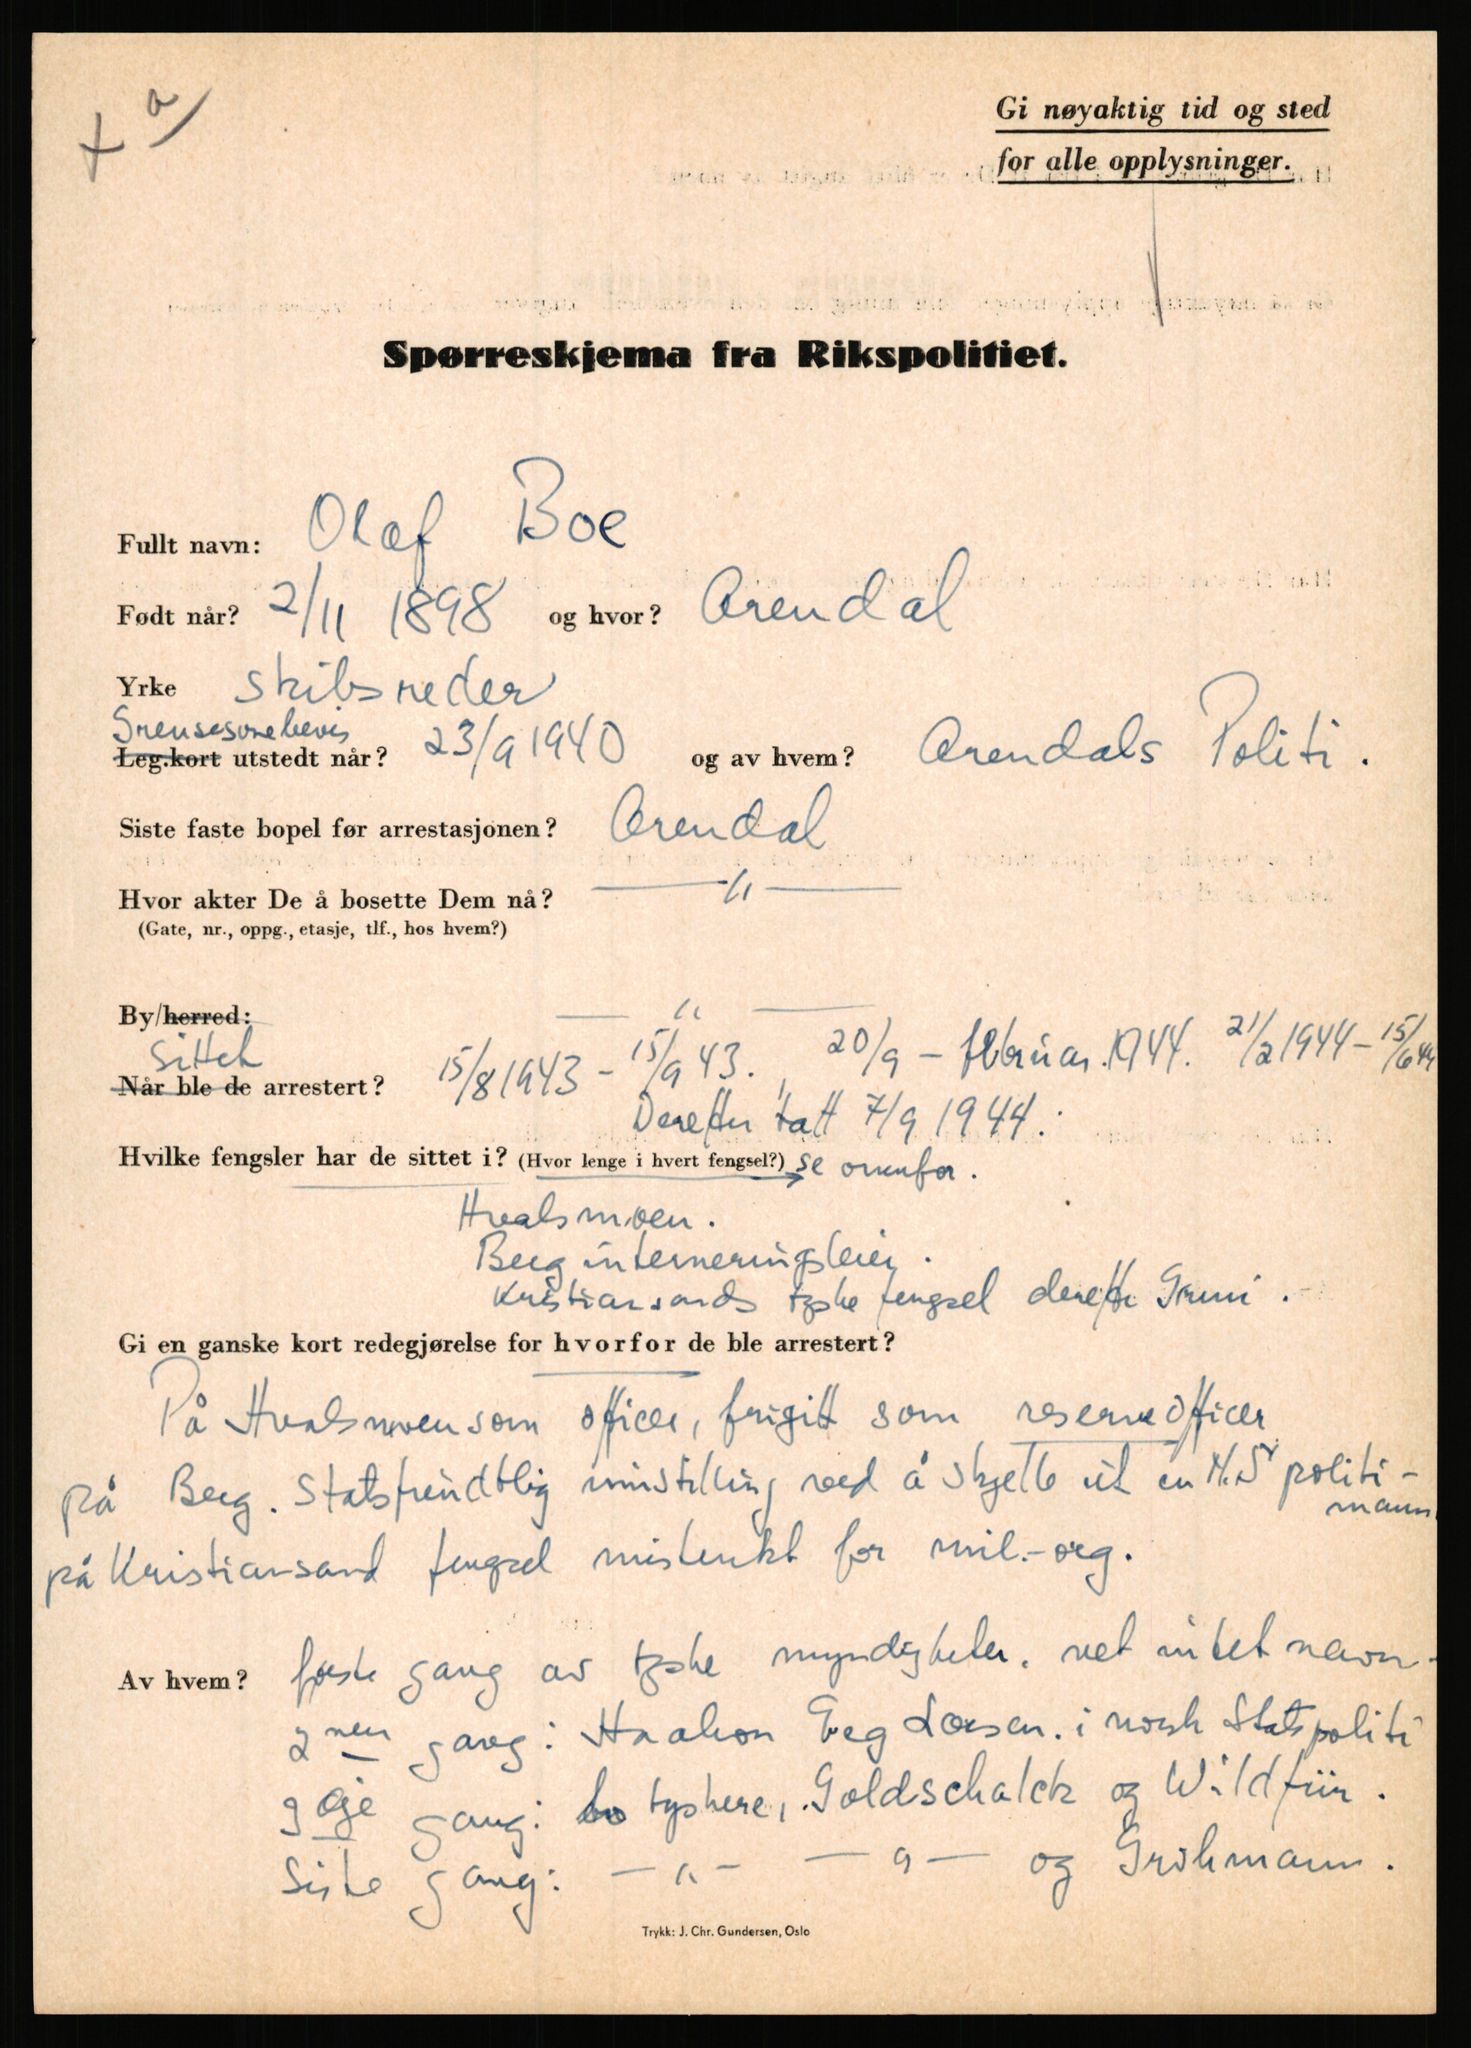 + a/
Gi nøyaktig tid og sted
for alle opplysninger.
Spørreskjema fra Rikspolitiet.
Fullt navn: Olaf Boe
Født når? 2/11 1898 og hvor? Arendal
Yrke skibsreder
Grensesonebevis
Leg.kort utstedt når? 23/9 1940 og av hvem? Arendals Politi.
Siste faste bopel før arrestasjonen? Arendal
Hvor akter De å bosette Dem nå? —〃—
(Gate, nr., oppg., etasje, tlf., hos hvem?)
By/herred: —〃—
Sittet
Når ble de arrestert? 15/8 1943 - 15/9 43. 20/9 - februar 1944. 21/2 1944 - 15/6 44
Derefter tatt 7/9 1944.
Hvilke fengsler har de sittet i? (Hvor lenge i hvert fengsel?) se ovenfor.
Hvalsmoen.
Berg interneringsleir.
Kristiansands tyske fengsel derefter Grini.
Gi en ganske kort redegjørelse for hvorfor de ble arrestert?
På Hvalsmoen som officer, frigitt som reserveofficer
på Berg. Statsfiendtlig innstilling ved å skjelle ut en N.S politi-
mann
på Kristiansand fengsel mistenkt for mil.-org.
Av hvem? første gang av tyske myndigheter. vet intet navn-
2nen gang: Haakon Eeg Larsen. i norsk Statspoliti
3dje gang: tyskere, Goldschalck og Wildfür.
Siste gang: —〃— —〃— og Gröhmann.
Trykk: J. Chr. Gundersen, Oslo